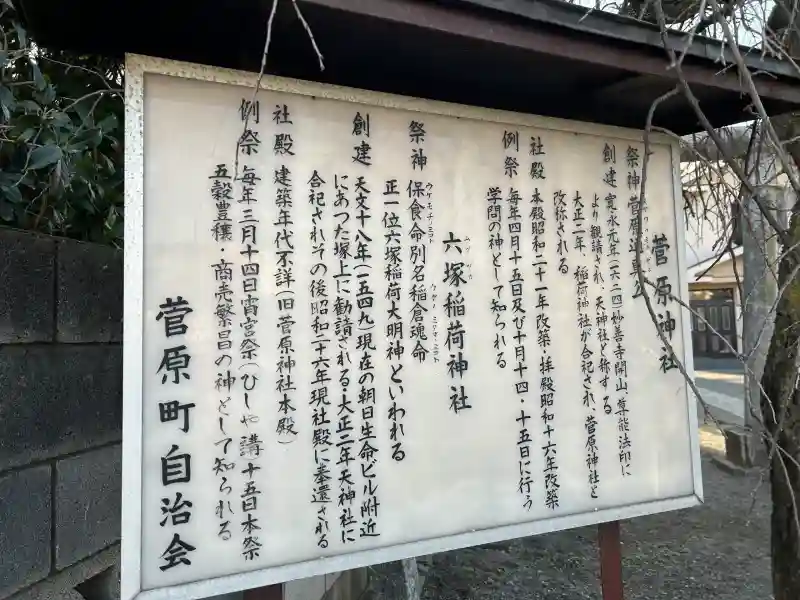 菅原神社
祭神 菅原道真公
創建 寛永元年(一六二四)妙善寺開山・尊能法印に
より観請され、天神社と称する
大正二年、稲荷神社が合祀され、菅原神社と
改称される
社殿 本殿昭和二十一年改築・拝殿昭和十六年改築
例祭 毎年四月十五日及び十月十四・十五日に行う
学問の神として知られる
六塚稲荷神社
祭神 保食命別名稲倉魂命
ウケモチノミコト ウケノミタマノミコト
正一位六塚稲荷大明神といわれる
創建 天文十八年(一五四九)現在の朝日生命ビル附近
にあつた塚上に勧請される・大正二年天神社に
合祀されその後昭和二十六年現社殿に奉遷される
社殿 建築年代不詳(旧菅原神社本殿)
例祭 毎年三月十四日宵宮祭(ひしゃ講)十五日本祭
五穀豊穣 商売繁昌の神として知られる
菅原町自治会